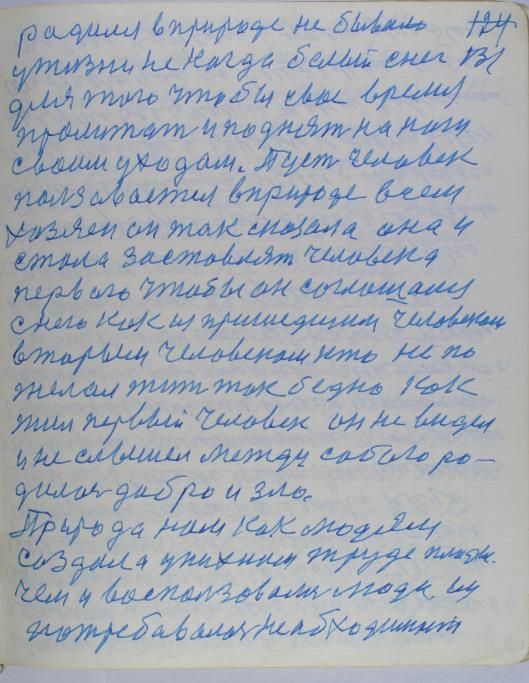 радился в природе не бывало 124
у жизни некагда белый снег 131
для того чтобы свое время
и поднят на наги
своим уходам. Пуст человек
ползавается в природе всем
хозяен он так сказала она и
стала заставлят человека
первого чтобы он соглашался
снего как из пришедшим человеком
вторым человеком кто не по
желал жит так бедно как
жил первый человек он не видел
и не слышел между собою ро-
дилось дабро и зло.
Природа нам как людям
создала уних ним труде
чем и воспользовались люди их
потребавался необходимит